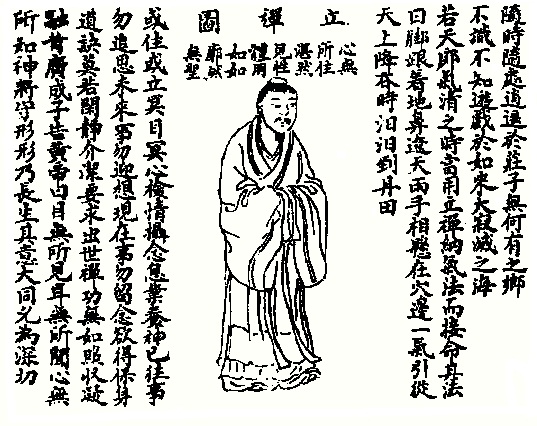 隨時隨處逍遙於莊子無何有之鄉
不識不知遊戲於如來大寂滅之海
若天朗氣清之時當用立禪納氣法而接命其法
曰脚跟着地鼻遼天兩手相懸在穴邊一氣引從
天上降吞時汩汩到丹田
立禪圖
心無
所住
湛然
見性
體用
如如
廓然
無聖
或住或立冥目冥心檢情攝念息業養神已往事
勿追思未來事勿迎想現在事勿留念欲得保身
道訣莫若閑靜介潔要求出世禪功無如照收凝
融昔廣成子告黃帝曰目無所見耳無所聞心無
所知神將守形形乃長生其意大同尤為深切